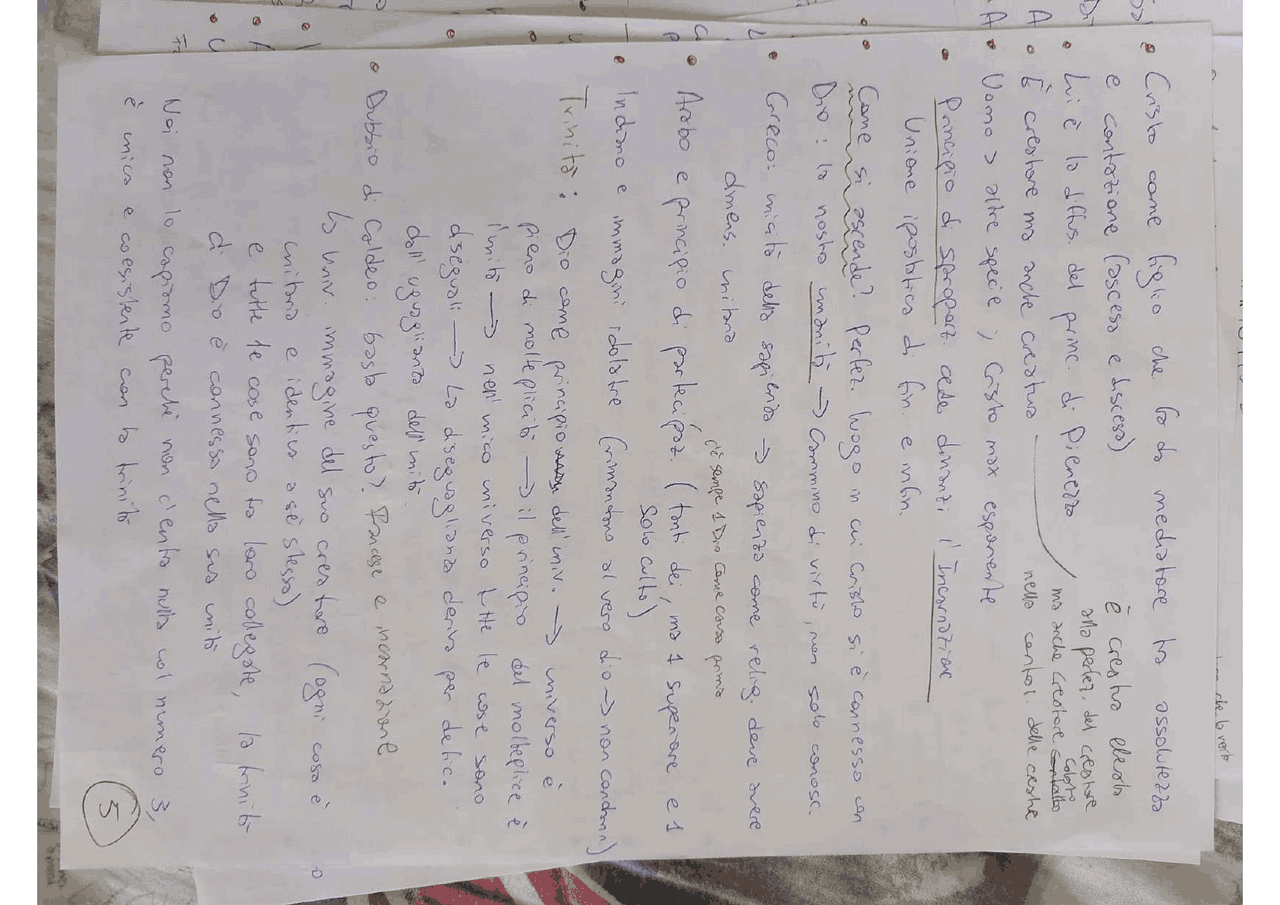 • Cristo come figlio che fa da mediatore tra assolutezza
e contrazione (ascesa e discesa)
• Lui è la diffus. del princ. di Pienezza
• È creatore ma anche creatura
è creatura elevata
alla perfez. del creatore
ma anche creatore calato
nella contraz. delle creature
• Uomo > altre specie ; Cristo max esponente
• Principio di sproporz. cede dinanzi l'Incarnazione
Unione ipostatica di fin. e infin.
• Come si ascende? Perfez. luogo in cui Cristo si è connesso con
Dio : la nostra umanità → Cammino di virtù, non solo conosc.
• Greco: unicità della sapienza → sapienza come relig. deve avere
dimens. unitaria
c'è sempre 1 Dio come causa prima
• Arabo e principio di partecipaz. (tanti dei, ma 1 superiore e 1
solo culto)
• Indiano e immagini idolatre (rimandano al vero dio → non condann)
Trinità : Dio come principio dell'univ. → universo è
pieno di molteplicità → il principio del molteplice è
unità → nell'unico universo tutte le cose sono
diseguali → la diseguaglianza deriva per
dall'uguaglianza dell'unità.
• Dubbio di Caldeo: basta questo? Francese e incarnazione
↳ Univ. immagine del suo creatore (ogni cosa è
unitaria e identica a sè stessa)
e tutte le cose sono fra loro collegate, la trinità
di Dio è connessa nella sua unità
Noi non lo capiamo perchè non c'entra nulla col numero 3,
è unica e coesistente con la trinità
5